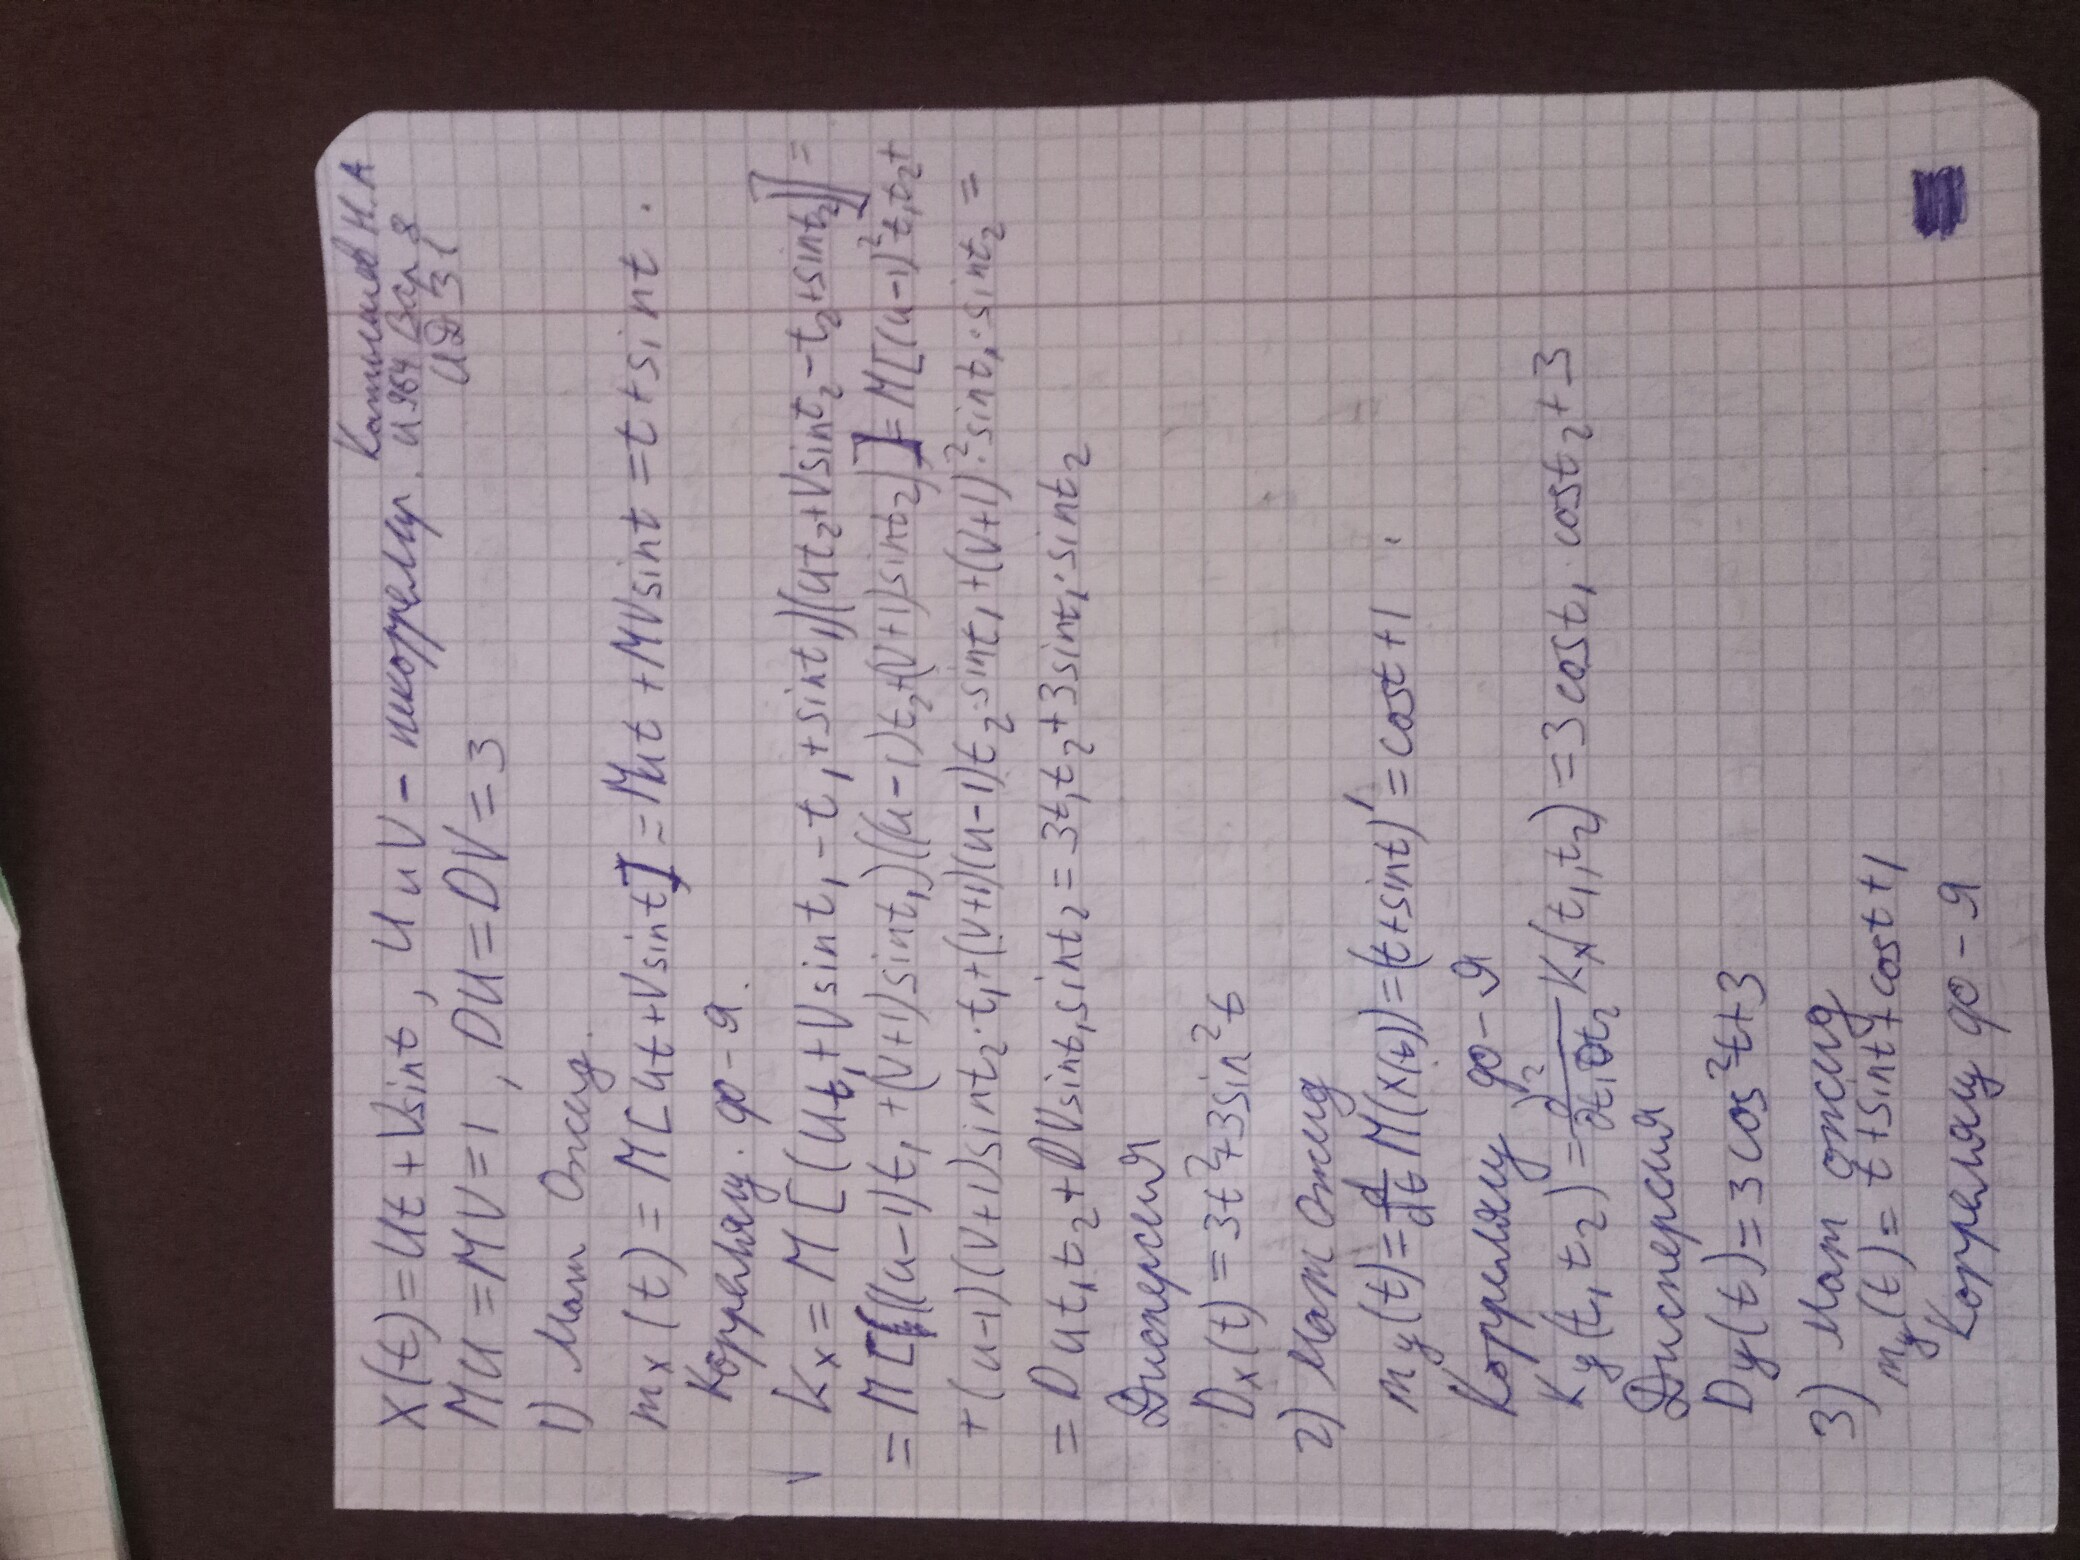 X(t)=Ut+Vsint, U и V – некоррелир.
Н.А
Вар 8
MU=MV=1, DU=DV=3
1) Мат Ожид.
mx(t)=M[Ut+Vsint]=MUt+MVsint=t+sint.
Корреляц. ф-я.
Kx=M[(Ut₁+Vsint₁-t₁+sint₁)(Ut₂+Vsint₂-t₂+sint₂)]=
=M[((U-1)t₁+(V+1)sint₁)((U-1)t₂+(V+1)sint₂)]=M[(U-1)²t₁t₂+
+(U-1)(V+1)sint₂·t₁+(V+1)(U-1)t₂·sint₁+(V+1)²·sint₁·sint₂=
=DUt₁t₂+DVsint₁sint₂=3t₁t₂+3sint₁·sint₂
Дисперсия
Dx(t)=3t²+3sin²t
2) Мат ожид
my(t)=d/dt M(X(t))=(t+sint)'=cost+1
Корреляц ф-я
Ky(t₁t₂)=∂²/∂t₁∂t₂ Kx(t₁,t₂)=3cost₁·cost₂+3
Дисперсия
Dy(t)=3cos²t+3
3) Мат ожид
my(t)=t+sint+cost+1
Корреляц ф-я